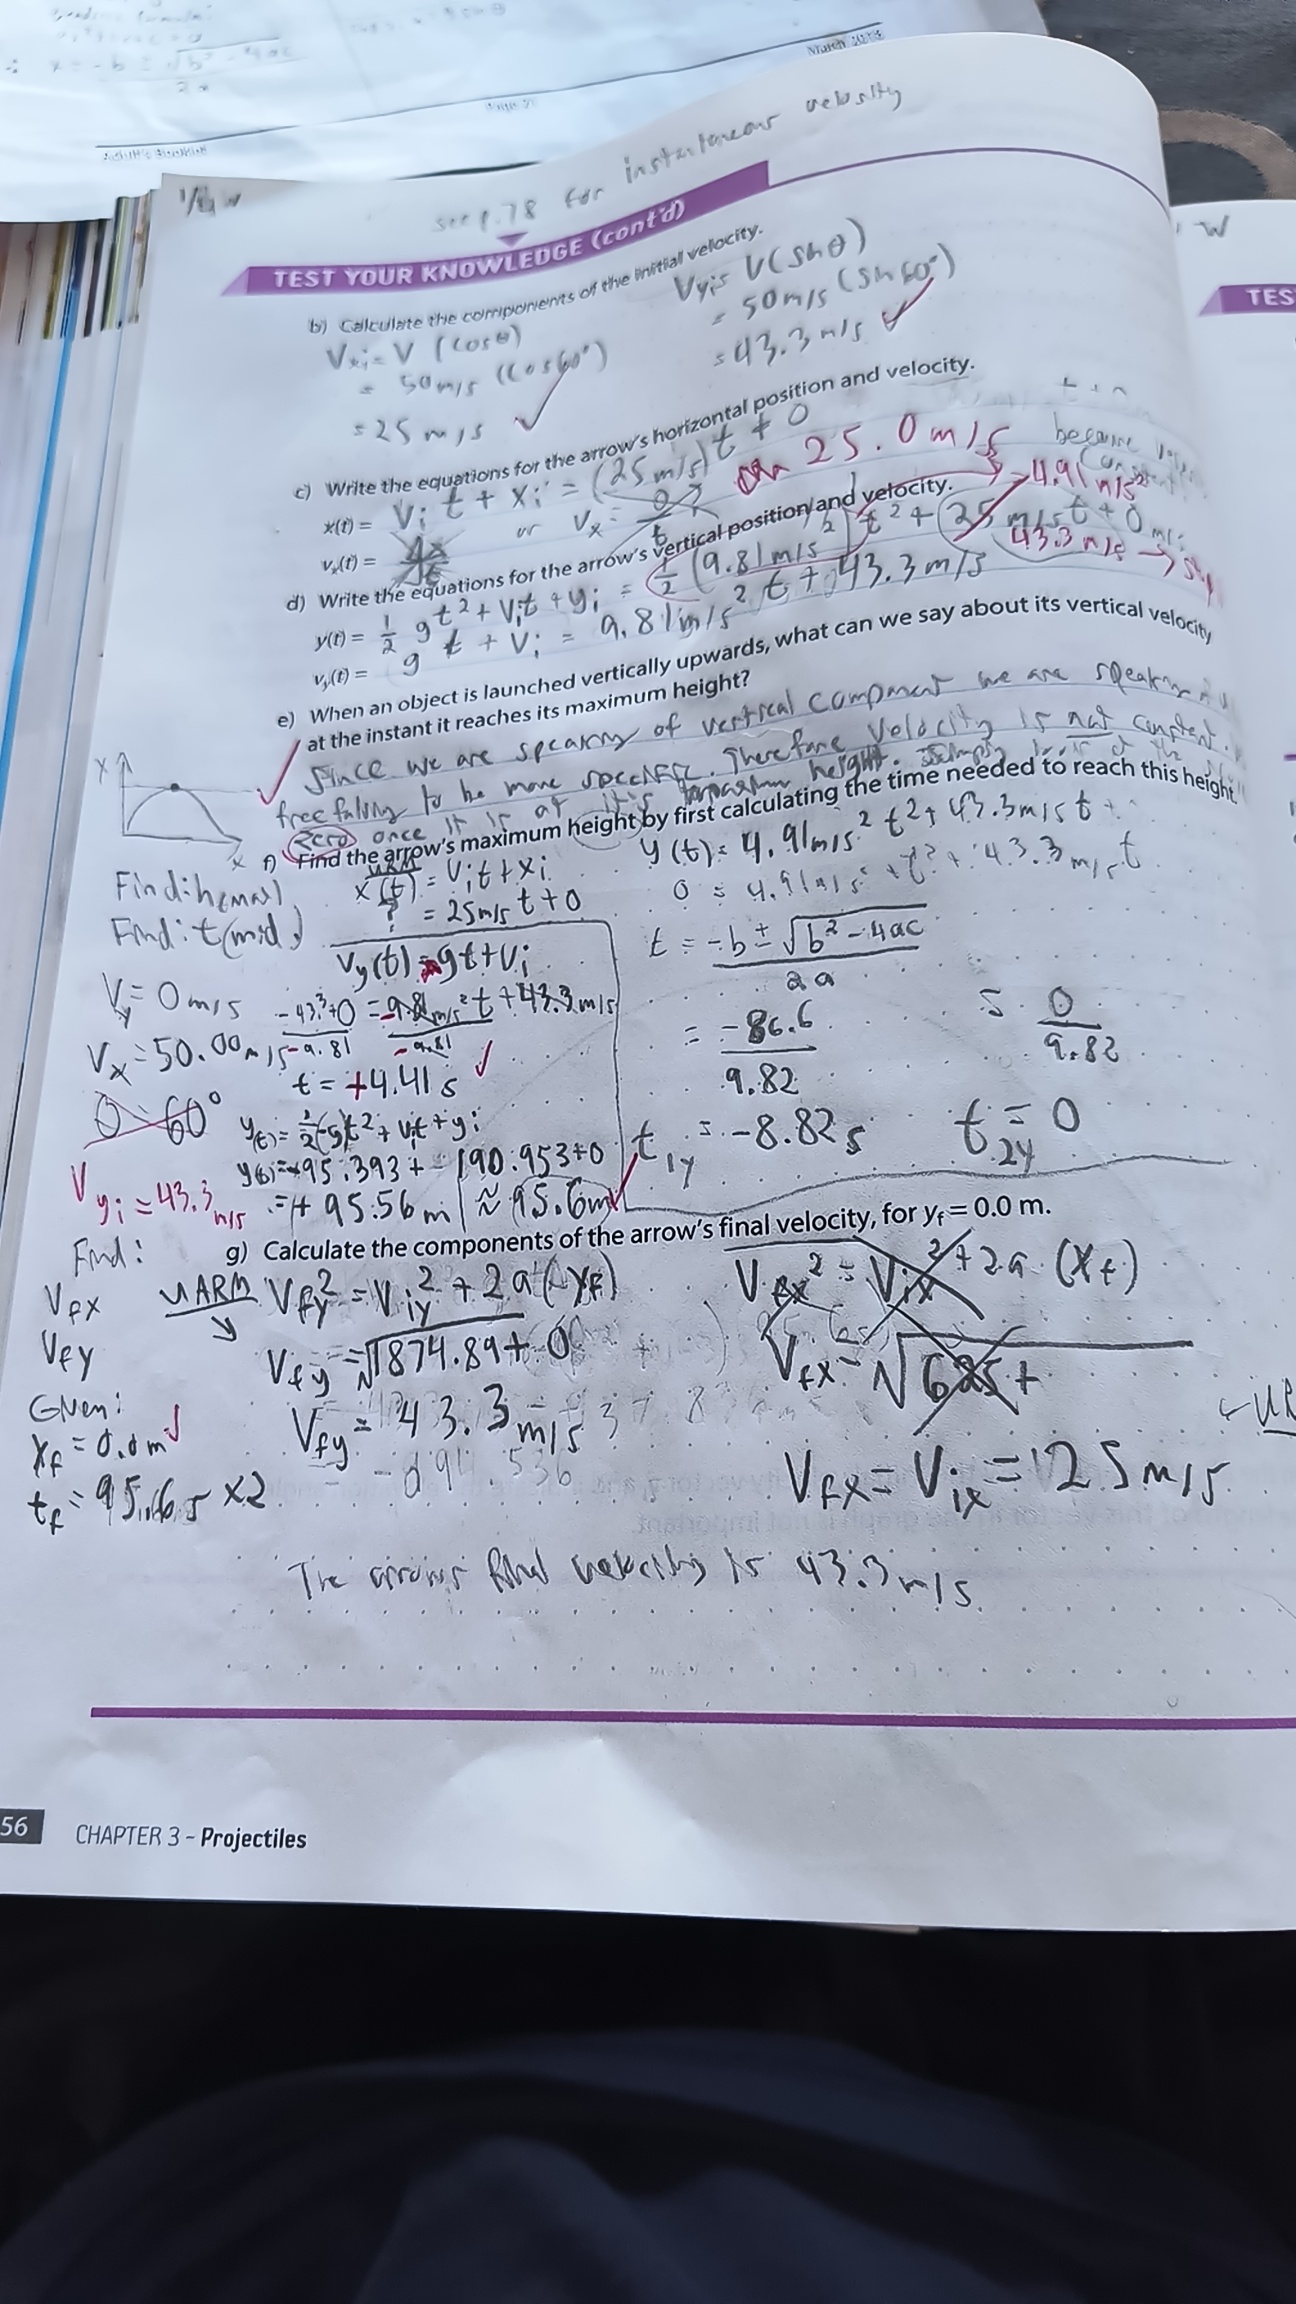 see p.78 for instantaneous velocity
TEST YOUR KNOWLEDGE (cont'd)
TES
b) Calculate the components of the initial velocity.
Vxi = V (cosθ)
= 50m/s (cos60°)
= 25 m/s ✓
Vyi = V(sinθ)
= 50m/s (sin60°)
= 43.3 m/s ✓
c) Write the equations for the arrow's horizontal position and velocity.
x(t) = Vi t + xi = (25m/s)t + 0
vx(t) = Δx/Δt or Vx = 25.0 m/s because
d) Write the equations for the arrow's vertical position and velocity.
-4.91 m/s²
y(t) = 1/2 gt² + Vit + yi = 1/2 (9.81m/s²) t² + (25 m/s t + 0
43.3 m/s
vy(t) = g t + Vi = 9.81m/s² t + 43.3m/s
e) When an object is launched vertically upwards, what can we say about its vertical velocity
at the instant it reaches its maximum height?
Since we are speaking of vertical component we are speaking
free falling to be more specific. Therefore velocity is not constant.
zero once it is at it's height.
f) Find the arrow's maximum height by first calculating the time needed to reach this height.
Find: h(max)
Find: t(mid)
x(t) = Vit + xi
? = 25m/s t + 0
Vy(t) = gt + Vi
Vy = 0m/s
-43.3+0 = -9.81m/s² t + 43.3m/s
-9.81 -9.81
Vx = 50.00m/s
t = +4.41 s ✓
θ = 60°
y(t) = 1/2(-g)t² + vit + yi
y(t) = -95.393 + 190.953 + 0
Vyi = 43.3 m/s
= + 95.56 m ≈ 95.6m ✓
y(t) = 4.91m/s² t² + 43.3m/s t +
0 = 4.91m/s² t² + 43.3m/s t
t = -b ± √b² - 4ac
2a
= -86.6
9.82
= 0
9.82
t1y = -8.82 s
t2y = 0
g) Calculate the components of the arrow's final velocity, for yf = 0.0 m.
Find:
Vfx
Vfy
Given:
xf = 0.0m
tf = 95.6 s x2
UARM Vfy² = Viy² + 2a(yf)
Vfy = √1874.89 + 0
Vfy = 43.3 m/s
Vfx² = Vix² + 2a (xf)
Vfx = √625+
Vfx = Vix = 25m/s
The arrows final velocity is 43.3m/s
56 CHAPTER 3 – Projectiles